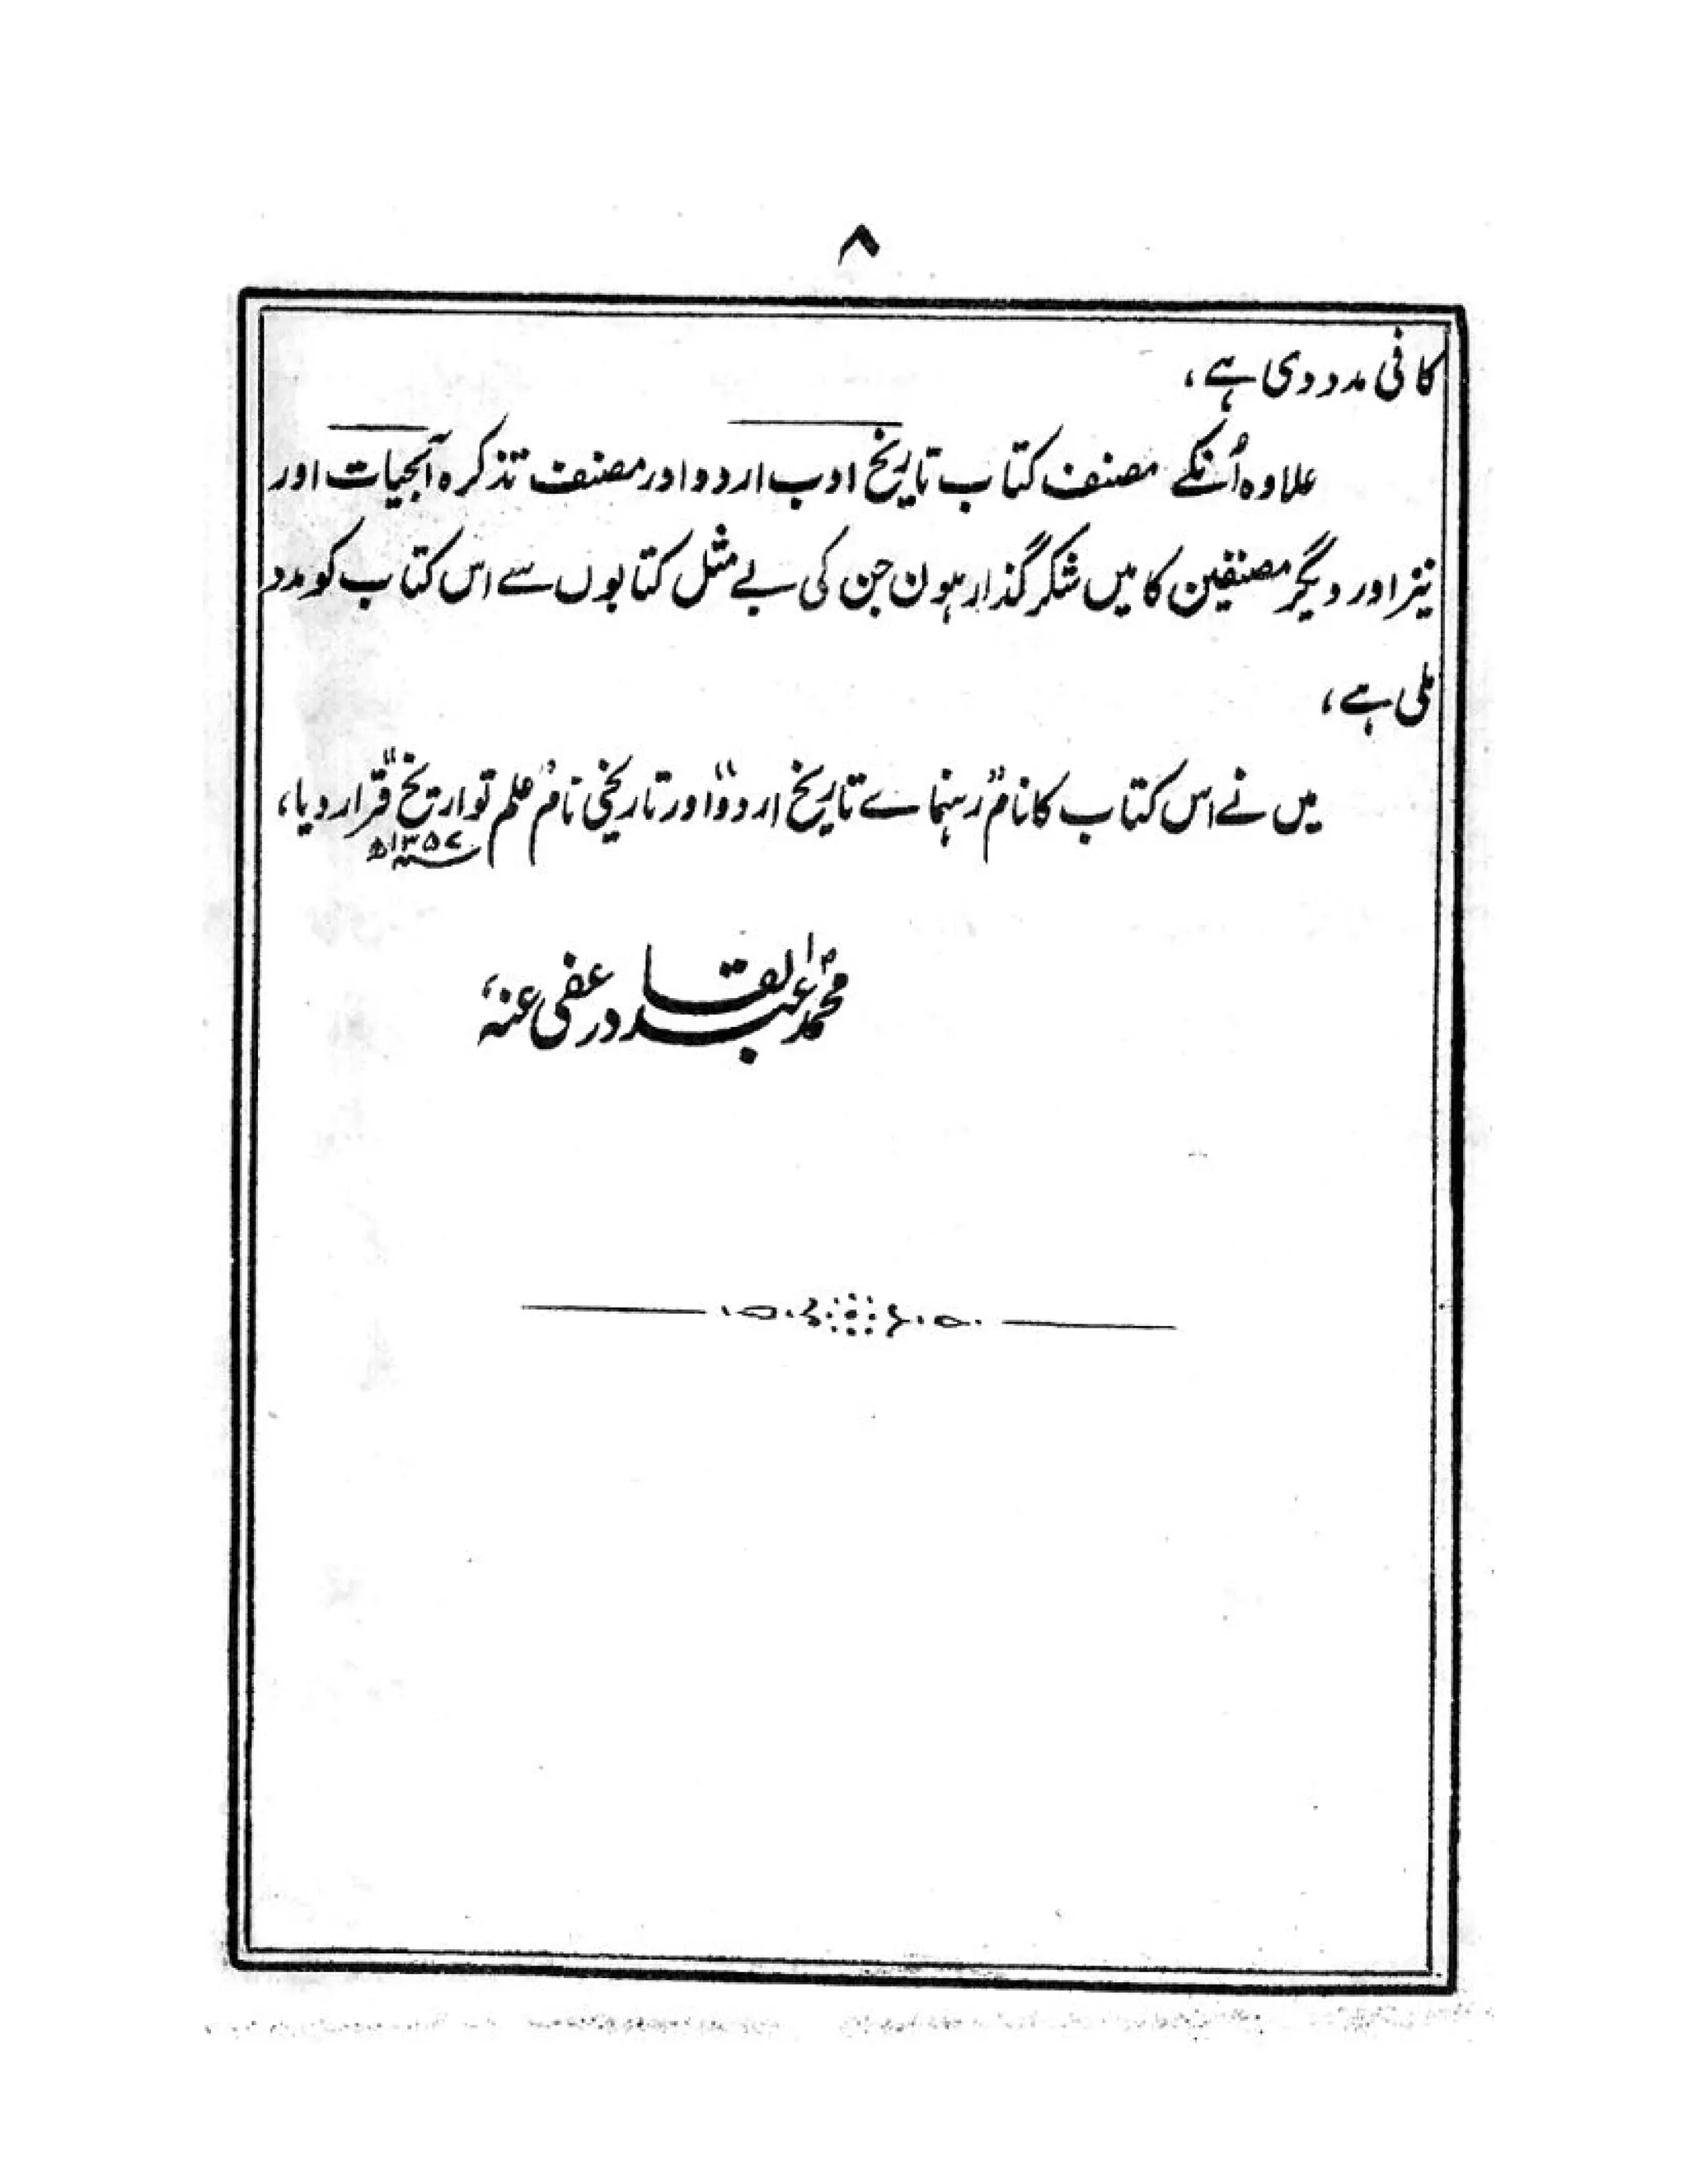 ۸
کافی مدد دی ہے،
علاوہ اُنکے مصنف کتاب تاریخ ادب اردو اور مصنف تذکرہ آبحیات اور
نیز اور دیگر مصنفین کا میں شکر گذار ہون جن کی بے مثل کتابوں سے اس کتاب کو مدد
ملی ہے،
میں نے اس کتاب کا نام "رہنماے تاریخ اردو" اور تاریخی نام "علم تواریخ" قرار دیا،
۱۳۵۷ھ
محمد عبد القادر عفی عنہ،